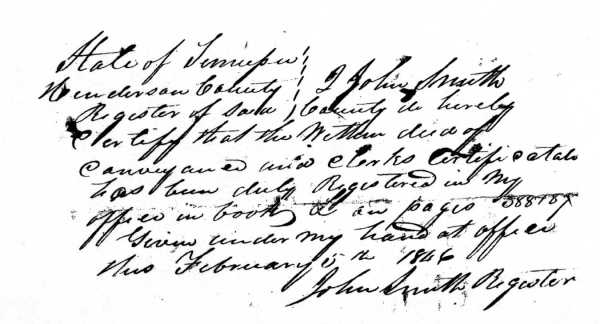 State of Tennessee
Henderson County I John Smith
Register of Said County do hereby
Certify that the Within deed of
Conveyance and Clerks Certificate
has been duly Registered in My
office in book on pages
Given under My hand at office
this February 5th 1846
John Smith Register